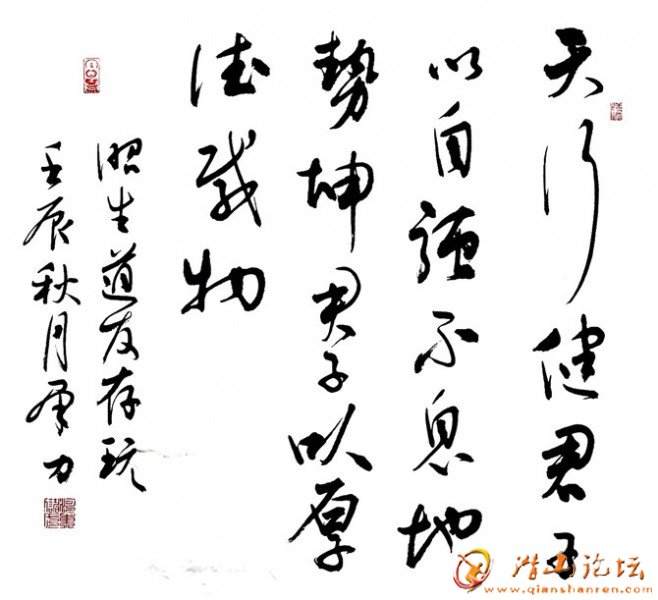 天行健君子
以自强不息地
勢坤君子以厚
德载物
照生道友存玩
壬辰秋月军力
潜山论坛
www.qianshanren.com